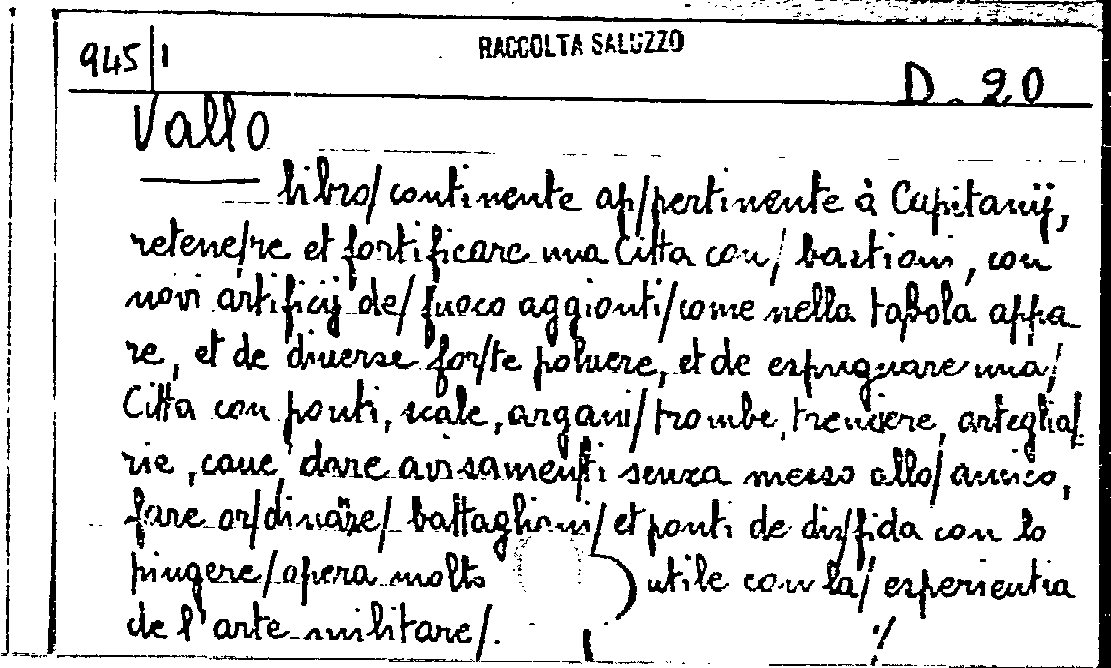 945/1
RACCOLTA SALUZZO
D. 20
Vallo
libro/continente ap/pertinente à Capitanij,
retene/re et fortificare una Citta con/ bastioni, con
novi artificij de/ fuoco aggionti/come nella tabola appa
re, et de diverse for/te polvere, et de espugnare una/
Citta con ponti, scale, argani/trombe, trenciere, arteglia/
rie, cave, dare avisamenti senza messo allo/amico,
fare or/dinaze/ battaglioni/ et ponti de dis/fida con lo
pingere/opera molto utile con la/ esperientia
de l'arte militare/.